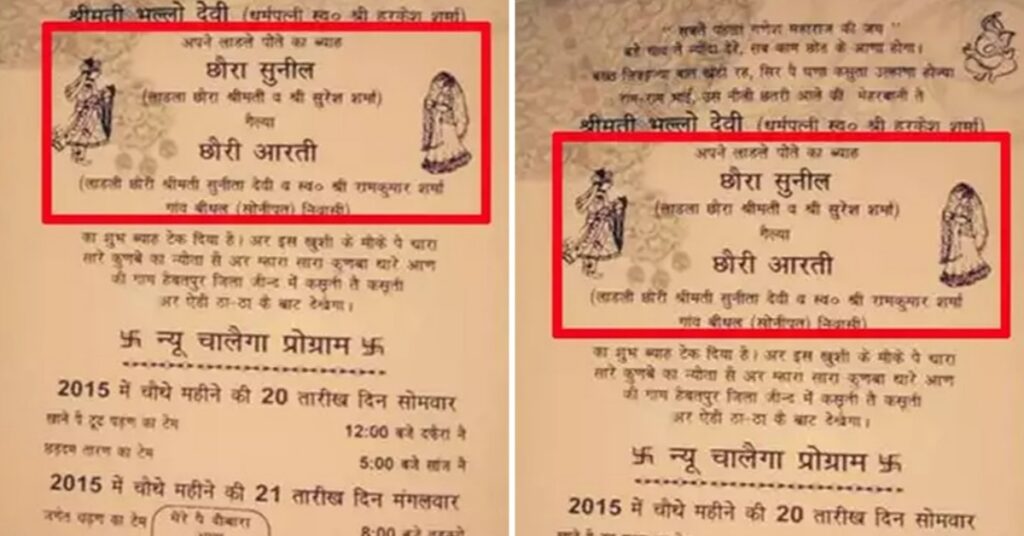 श्रीमती भल्लो देवी (धर्मपत्नी स्व० श्री हरकेश शर्मा)
अपने लाडले पोते का ब्याह
छौरा सुनील
(लाडला छौरा श्रीमती व श्री सुरेश शर्मा)
गैल्या
छौरी आरती
(लाडली छोरी श्रीमती सुनीता देवी व स्व० श्री रामकुमार शर्मा
गांव बीधल (सोनीपत) निवासी)
का शुभ ब्याह टेक दिया है। अर इस खुशी के मौके पे थारा
सारे कुणबे का न्यौता सै अर म्हारा सारा कुणबा थारे आण
की गाम हेबतपुर जिला जीन्द में कसुती तै कसुती
अर ऐडी ठा-ठा के बाट देखेगा।
卐 न्यू चालैगा प्रोग्राम 卐
2015 में चौथे महीने की 20 तारीख दिन सोमवार
खाने पै टूट पड़ण का टेम 12:00 बजे दफेरां नै
छड़दम तारण का टेम 5:00 बजे सांज नै
2015 में चौथे महीने की 21 तारीख दिन मंगलवार
जनेत चढ़ण का टेम 8:00 बजे तड़कै
मेरे पै चौबारा
" सबतै पहल्यां गणेश महाराज की जय "
सब काम छोड के आणा होगा।
सिर पै घणा कसुता उल्हाणा होज्या
राम-राम भाई, उस नीली छतरी आले की मेहरबानी तै
श्रीमती भल्लो देवी (धर्मपत्नी स्व० श्री हरकेश शर्मा)
अपने लाडले पोते का ब्याह
छौरा सुनील
(लाडला छौरा श्रीमती व श्री सुरेश शर्मा)
गैल्या
छौरी आरती
(लाडली छोरी श्रीमती सुनीता देवी व स्व० श्री रामकुमार शर्मा
गांव बीधल (सोनीपत) निवासी)
का शुभ ब्याह टेक दिया है। अर इस खुशी के मौके पे थारा
सारे कुणबे का न्यौता सै अर म्हारा सारा कुणबा थारे आण
की गाम हेबतपुर जिला जीन्द में कसुती तै कसुती
अर ऐडी ठा-ठा के बाट देखेगा।
卐 न्यू चालैगा प्रोग्राम 卐
2015 में चौथे महीने की 20 तारीख दिन सोमवार